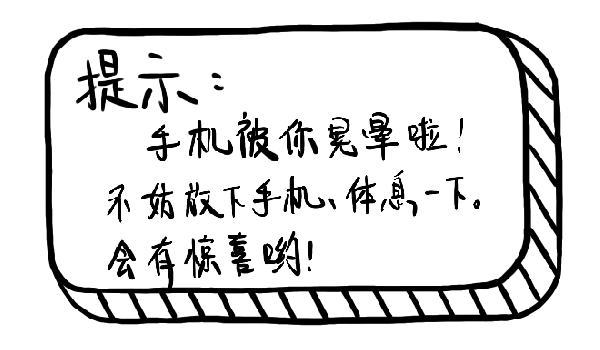 提示：
手机被你晃晕啦！
不姑放下手机、体息一下。
会有惊喜哟！